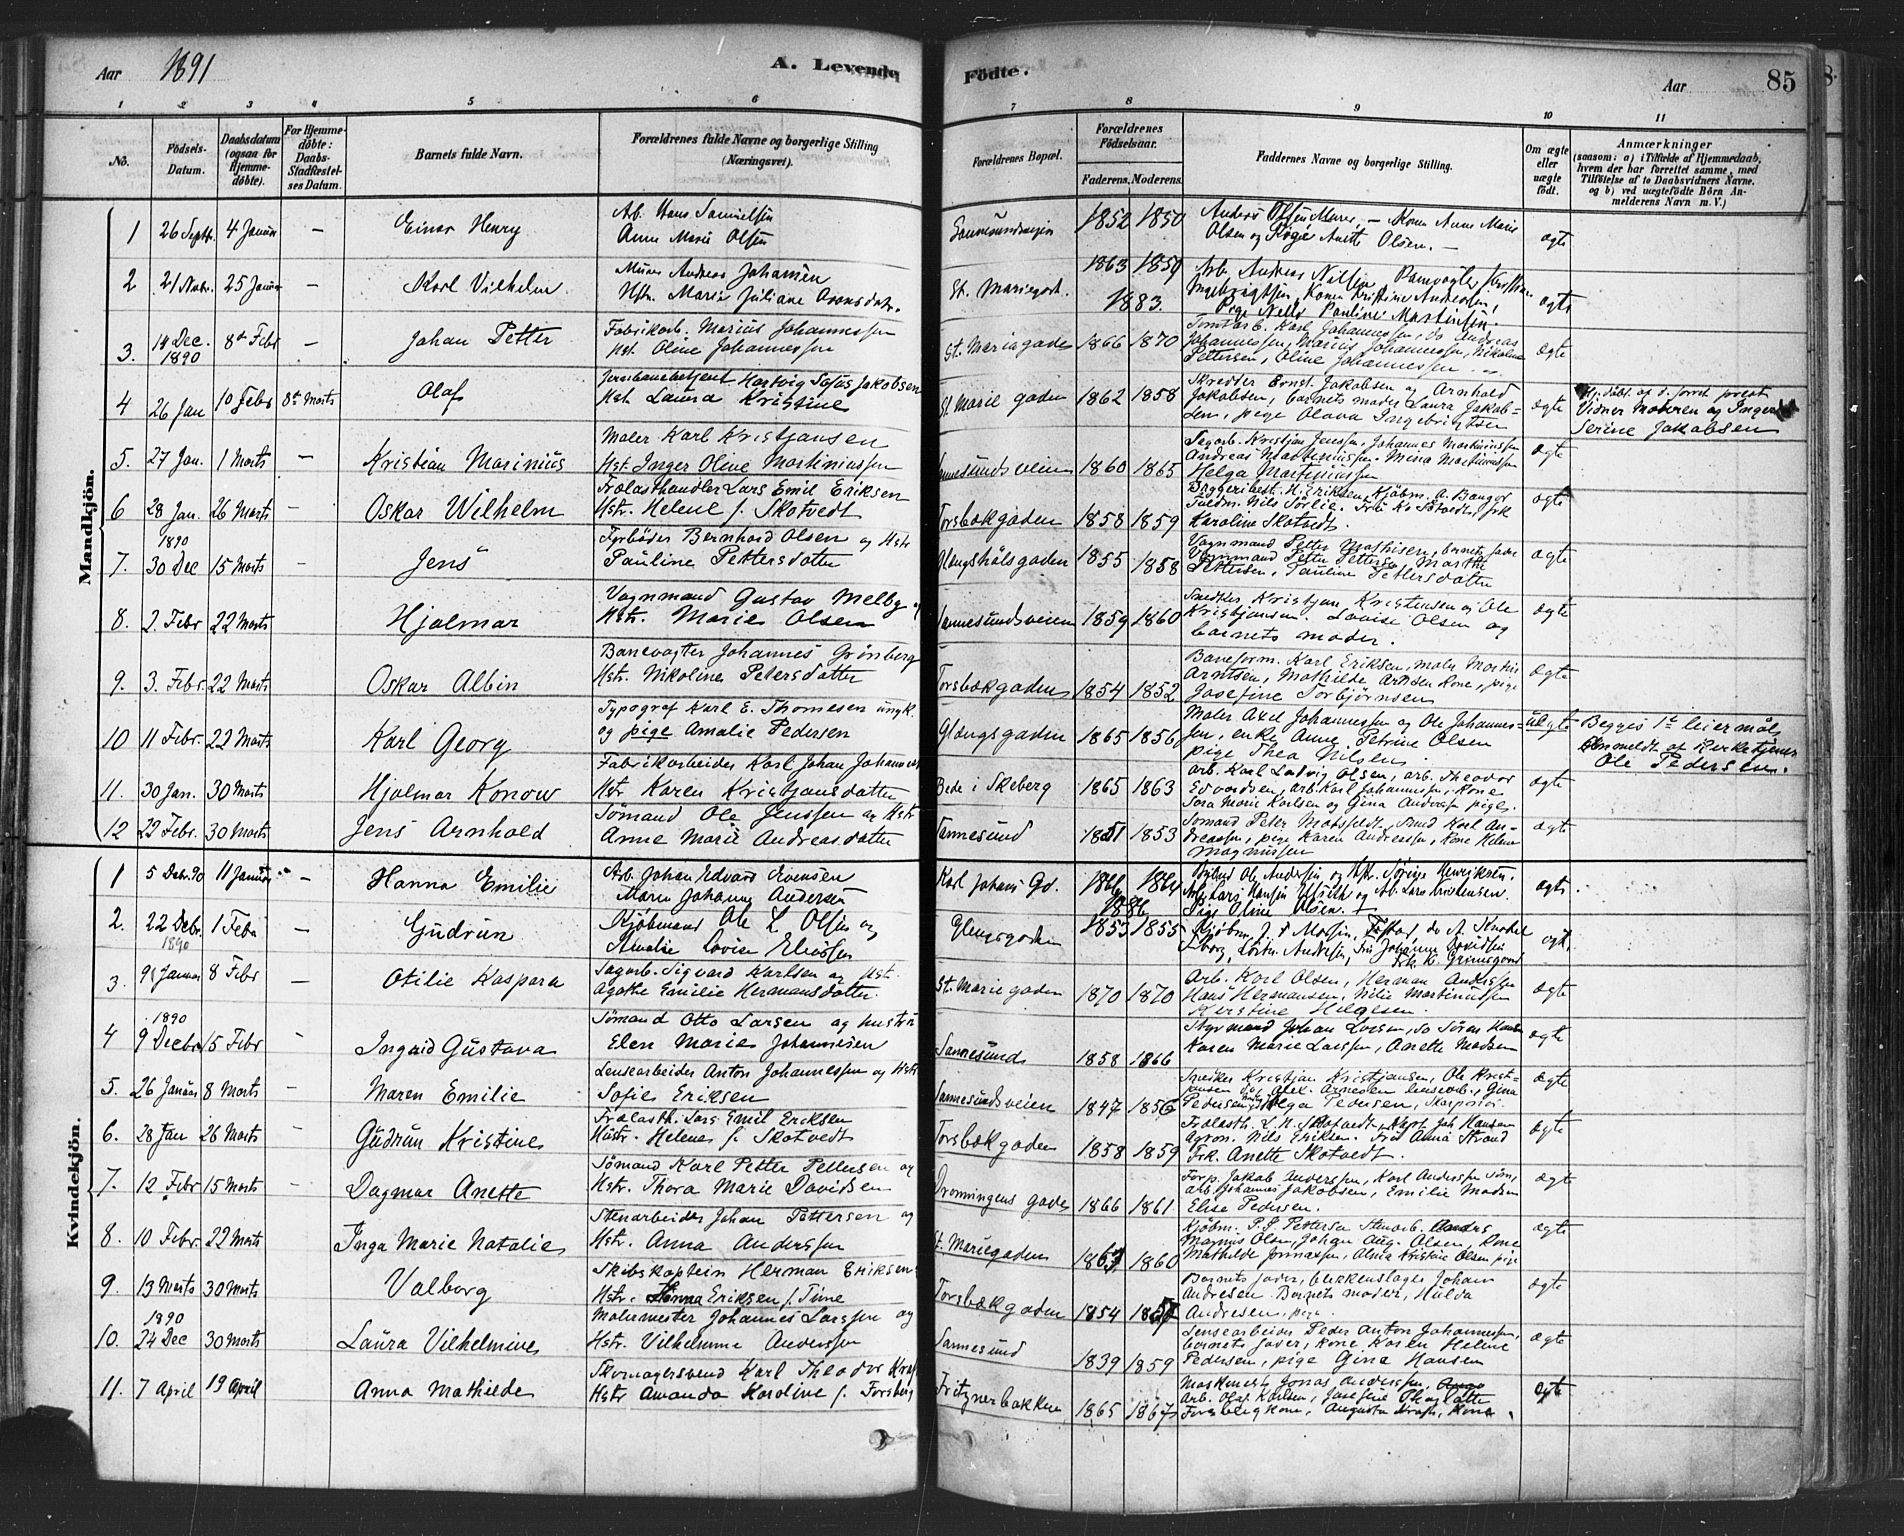 Aar 1891 A. Levende
Födte. Aar 85
1 2 3 4 5 6 7 8 9 10 11
No. Födsels-Datum. Daabsdatum (ogsaa for Hjemme-döbte). For Hjemme-döbte: Daabs-Stadfæstel-ses Datum. Barnets fulde Navn. Forældrenes fulde Navne og borgerlige Stilling (Næringsvei).
Forældrenes Bopæl. Forældrenes Födselsaar. Faderens. Moderens. Faddernes Navne og borgerlige Stilling. Om ægte eller uægte födt. Anmærkninger (saasom: a) i Tilfælde af Hjemmedaab, hvem der har forrettet samme, med Tilföielse af to Daabsvidners Navne, og b) ved uægtefödte Börn An-melderens Navn m. V.)
Mandkjön.
1 26 Septbr. 4 Januar – Einar Henry Arb. Hans Samuelsen
Anne Marie Olsen
1852 1850 Anders Olsen Murer – Kone Anne Marie
Olsen og Pige Anette Olsen. – ægte
2 21 Novbr. 25 Januar – Karl Vilhelm Murer Andreas Johansen
Hstr. Marie Juliane Aronsdatr.
St. Mariegad. 1863 1859 Arb. Andreas Nilsen Banevogter Kristian
1883. Ingebrigtsen, Kone Kristine Andersen,
Pige Nelly Pauline Martinsen. ægte
3. 14 Dec. 1890 8de Febr – Johan Petter Fabrikarb. Marius Johannessen
Hst. Oline Johannessen
St. Mariegade 1866 1870 Tomtarb. Karl Johannessen, do Andreas
Johannessen, Marius Johannessen, Nikoline
Pettersen, Oline Johannessen ægte
4 26 Jan 10 Febr 8de Marts Olaf Jernbanebetjent Hartvig Sofus Jakobsen
Hst. Laura Kristine
St. Marie gaden 1862 1858 Skredder Ernst Jakobsen og Arnhold
Jakobsen, barnets moder Laura Jakob-
sen, pige Olava Ingebrigtsen ægte
Hj. döbt af d. forrt. prest
Vidner Moderen og Inger
Serine Jakobsen
5. 27 Jan. 1 Marts – Kristian Marinius Maler Karl Kristjansen
Hst. Inger Olive Martiniussen
Sannesundsveien 1860 1865 Sagarb. Kristjan Jenssen, Johannes Martiniussen
Andreas Martiniussen. Mina Martiniussen
Helga Martiniussen ægte
6 28 Jan. 26 Marts – Oskar Wilhelm Trælasthandler Lars Emil Eriksen
Hstr. Helene f. Skotvedt
Torsbækgaden 1858 1859 Bryggeribest. H. Eriksen, Kjöbm. A. Bangor
Fuldm. Nils Sörlie
Karoline Skotvedt. ægte
7. 1890 30 Dec 15 Marts – Jens Fyrböder Bernhard Olsen og Hstr
Pauline Pettersdatter
Glengshölsgaden 1855 1858 Vognmand Petter Mathisen, barnets fader
Vognmand Petter Pettersen, Marthe
Pettersen, Pauline Pettersdatter ægte
8. 2. Febr 22 Marts Hjalmar Vognmand Gustav Melby og
Hstr. Marie Olsen
Sannesundsveien 1859 1860 Snedker Kristjan Kristensen og Ole
Kristjansen. Lovise Olsen og
barnets moder. ægte
9. 3. Febr. 22 Marts Oskar Albin Banevogter Johannes Grönberg
Hstr. Nikoline Petersdatter
Torsbækgaden 1854 1852 Baneform. Karl Eriksen, maler Martin
Arntsen, Mathilde Arntsen Kone, pige
Josefine Torbjörnsen ægte
10 11 Febr. 22 Marts Karl Georg Typograf Karl E. Thomesen ungk.
og pige Amalie Pedersen
Glengsgaden 1865 1856 Maler Axel Johannessen og Ole Johannes-
sen, enke Anne Petrine Olsen
pige Thea Nilsen. uægte
Begges 1te leiermål
Anmeldt af Kirketjener
Ole Pedersen.
11. 30 Jan. 30 Marts Hjalmar Konow Fabrikarbeider Karl Johan Johannesen
Hstr Karen Kristjansdatter
Bede i Skeberg 1865 1863 Arb. Karl Ludvig Olsen, arb. Theodor
Edvardsen, arb. Karl Johannessen, Kone
Sara Marie Karlsen og Gina Andersen piger. ægte
12 22 Febr. 30 Marts Jens Arnhold Sömand Ole Jenssen og Hstr
Anne Marie Andreasdatter
Sannesund 1851 1853 Sömand Peter Matsfeldt, Smed Karl An-
dreassen, pige Karen Andreassen, Kone Helene
Magnussen ægte
Kvindekjön.
1 5 Decbr. 90 11 Januar – Hanna Emilie Arb. Johan Edvard Evensen
Maren Johanne Andersen
Karl Johans Gd. 1866 1864
1886 Pige Oline Olsen. ægte
2. 22 Decbr. 1890 1 Feba – Gudrun Kjöbmand Ole L. Olsen og
Amalie Lovise Eliassen
Glengsgaden 1855 1855 ægt.
3. 9 Januar 8 Febr – Otilie Kaspara Sagarb. Sigvard Karlsen og Hst.
Agathe Emilie Hermansdatter.
St. Mariegaden 1870 1870 Arb. Karl Olsen, Herman Andersen
Hans Hermansen, Nilie Martiniussen
Kerstine Helgesen. ægte
4 1890 9 Decbr 15 Febr – Ingrid Gustava Sömand Otto Larsen og hustru
Elen Marie Johannesen
Sannesund 1858 1866 Styrmand Johan Larsen, do Sören Hansen
Karen Marie Larssen, Anette Madsen ægte
5. 26 Januar 8 Marts – Maren Emilie Lensearbeider Anton Johannessen og Hstr
Sofie Eriksen
Sannesundsveien 1847 1856 Snedker Kristjan Kristjansen, Ole Krist-
jansen do, Alex. Arnesen lensearb., Gina
Pedersen, Helga Pedersen, Skarpsno. ægte
6. 28 Jan 26 Marts – Gudrun Kristine Trælasth. Lars Emil Eriksen
Hustr. Helene f. Skotvedt
Torsbækgaden 1858 1859 Trælasth. L. H. Skotvedt, Kapt Joh Hansen
Agron. Nils Eriksen. Frk Anna Strand
Frk. Anette Skotvedt. ægte
7. 12 Febr 15 Marts – Dagmar Anette Sömand Karl Petter Pettersen og
Hstr. Thora Marie Davidsen
Dronningens gade 1866 1861 Forp. Jakob Anderssen, Karl Anderssen Söm,
arb. Johannes Jakobsen, Emilie Madsen
Elise Pedersen. ægte
8. 10 Febr. 22 Marts Inga Marie Natalie Stenarbeider Johan Pettersen og
Hstr. Anna Anderssen
St. Mariegaden 1863 1860 Kjöbm. P. J. Petterson Stenarb. Anders
Magnus Olsen, Johan Aug. Olsen, Kone
Mathilde Jonnassen, Alma Kristine Olsen pige ægte
9. 13 Marts 30 Marts Valborg Skibskaptein Herman Eriksen
Hstr. Hanna Eriksen f. Time
Torsbækgaden 1854 Barnets fader, blikkenslager Johan
Andresen Barnets moder, Hulda
Andresen, pige. ægte
10. 1890 24 Dec 30 Marts Laura Vilhelmine Malermester Johannes Larssen og
Hstr. Vilhelmine Anderssen
Sannesund 1839 1859 Lensearbeider Peder Anton Johannessen,
barnets fader, kone Karen Helene
Pedersen, pige Gina Hansen ægte
11. 7 April 19 April Anna Mathilde Skomagersvend Karl Theodor Kraft
Hstr Amanda Karoline f. Forsberg
Fritznerbakken 1865 1867 Maskinest Jonas Anderssen,
Arb. Olaf Karlsen, Josefine Charlotte
Forsberg kone, Augusta Kraft, kone. ægte